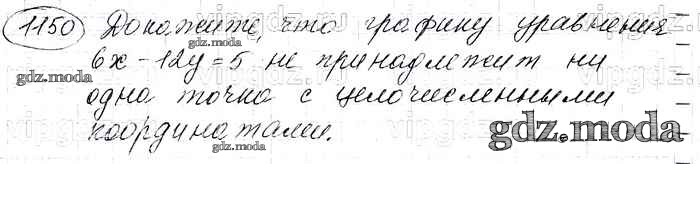 1150 Докажите, что графику уравнения
6x - 12y = 5 не принадлежит ни
одна точка с целочисленными
координатами.
gdz.moda
gdz.moda
gdz.moda
gdz.moda